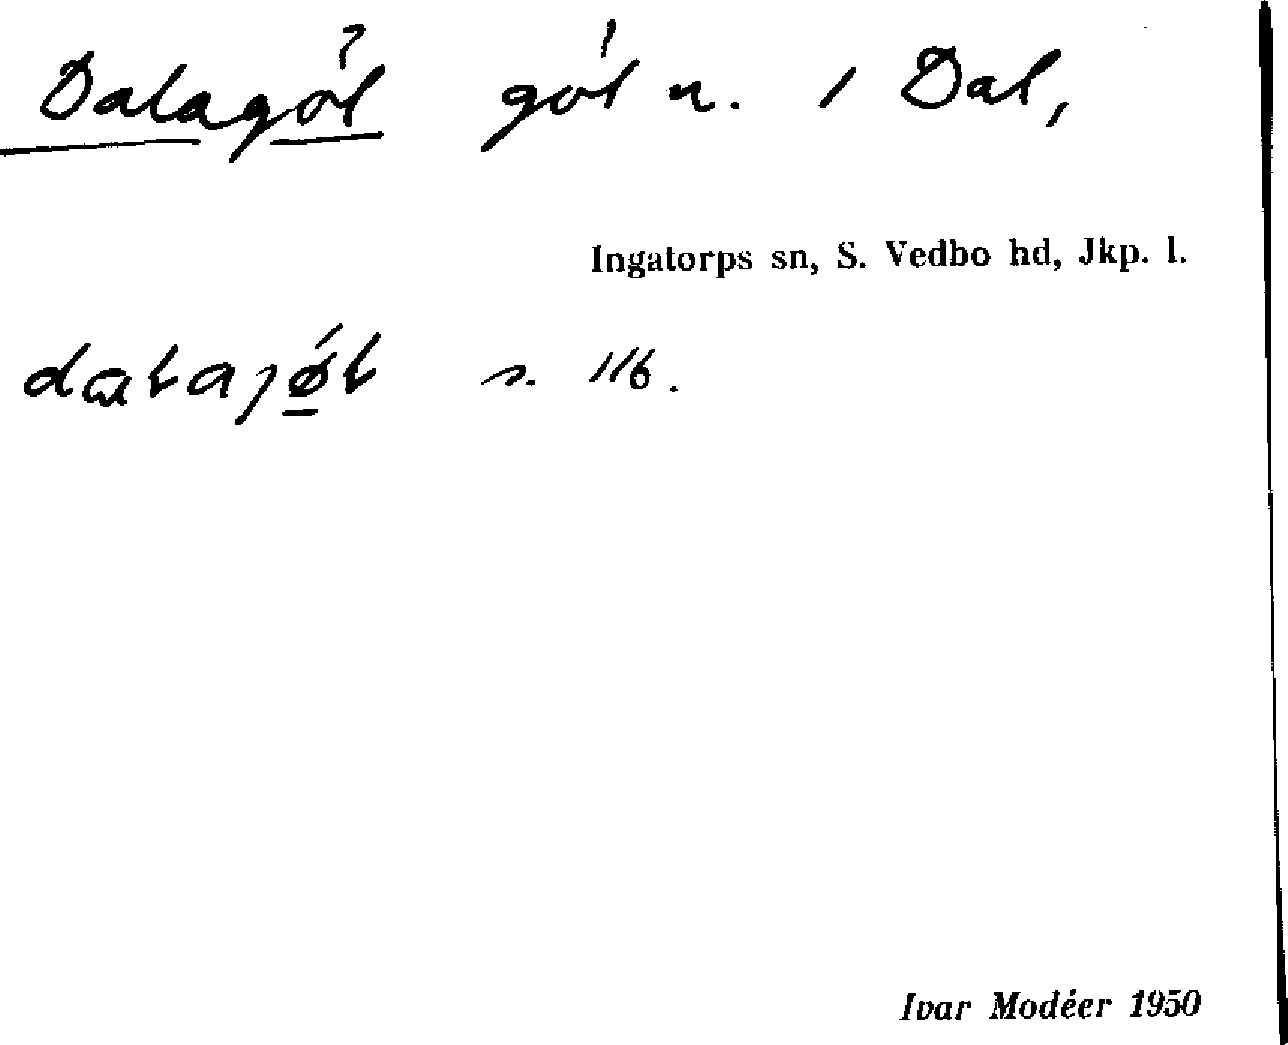 Dalagöl göl n. i Dal,
Ingatorps sn, S. Vedbo hd, Jkp. l.
s. 116.
Ivar Modéer 1950